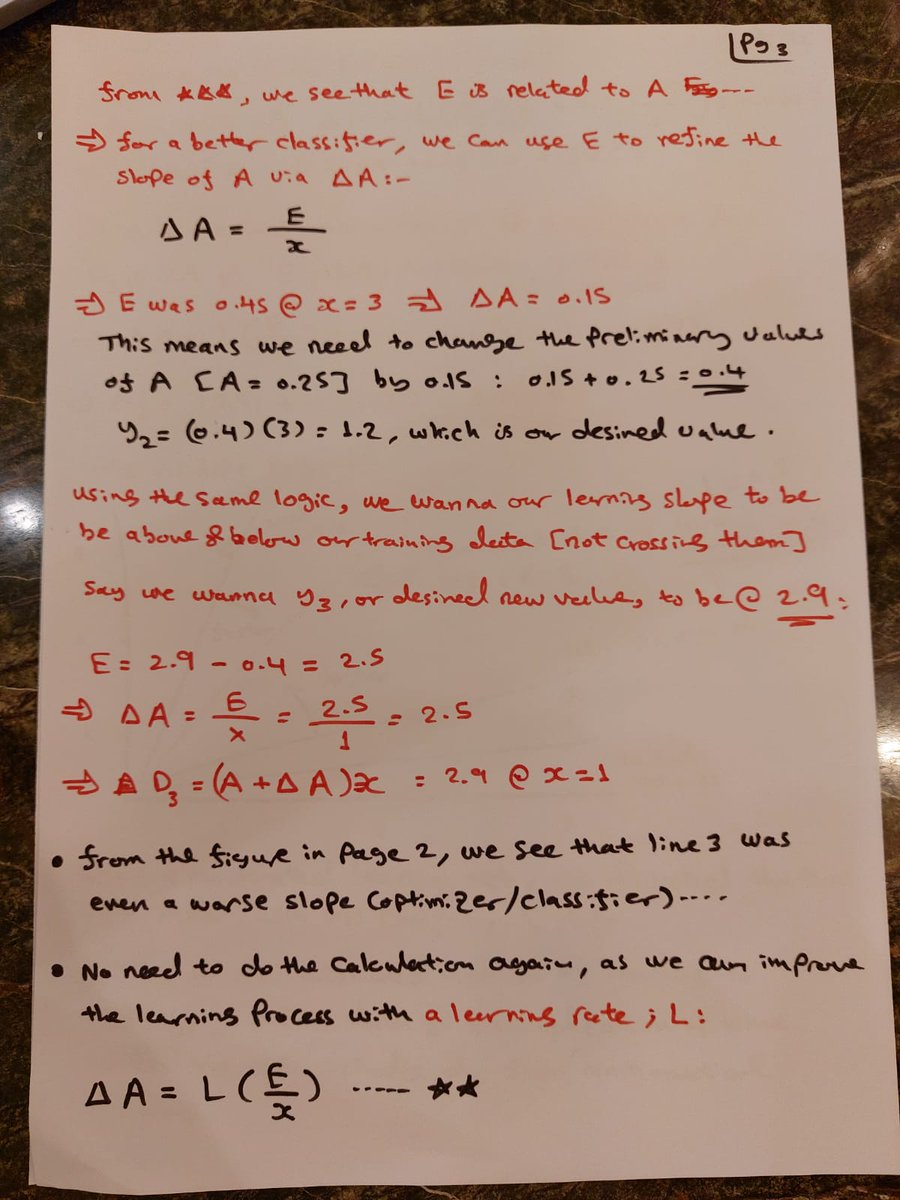 Pg 3
from ★★★, we see that E is related to A
⇒ for a better classifier, we can use E to refine the
slope of A via ΔA:-
ΔA = E/x
⇒ E was 0.45 @ x=3 ⇒ ΔA = 0.15
This means we need to change the preliminary values
of A [A=0.25] by 0.15 : 0.15 + 0.25 = 0.4
y₂ = (0.4)(3) = 1.2, which is our desired value.
using the same logic, we wanna our learning slope to be
be above & below our training data [not crossing them]
Say we wanna y₃, or desired new value, to be @ 2.9:
E = 2.9 - 0.4 = 2.5
⇒ ΔA = E/x = 2.5/1 = 2.5
⇒ D₃ = (A + ΔA)x = 2.9 @ x=1
• from the figure in page 2, we see that line 3 was
even a warse slope (optimizer/classifier)....
• No need to do the calculation again, as we can improve
the learning process with a learning rate ; L:
ΔA = L(E/x) ..... ★★